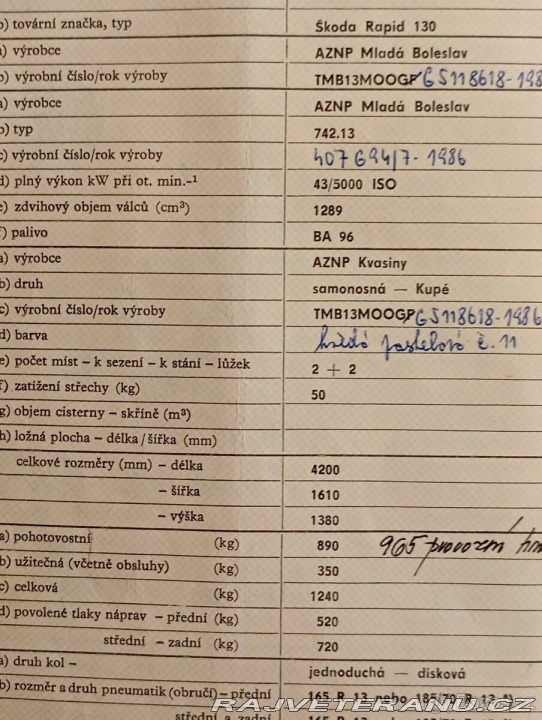 b) tovární značka, typ Škoda Rapid 130
a) výrobce AZNP Mladá Boleslav
b) výrobní číslo/rok výroby TMB13MOOGP G5118618-198
a) výrobce AZNP Mladá Boleslav
b) typ 742.13
c) výrobní číslo/rok výroby 407694/7-1986
d) plný výkon kW při ot. min.-¹ 43/5000 ISO
e) zdvihový objem válců (cm³) 1289
f) palivo BA 96
a) výrobce AZNP Kvasiny
b) druh samonosná — Kupé
c) výrobní číslo/rok výroby TMB13MOOGP G5118618-1986
d) barva hnědá pastelová č. 11
e) počet míst – k sezení – k stání – lůžek 2 + 2
f) zatížení střechy (kg) 50
g) objem cisterny – skříně (m³)
h) ložná plocha – délka/šířka (mm)
celkové rozměry (mm) – délka 4200
– šířka 1610
– výška 1380
a) pohotovostní (kg) 890 965 provozní
b) užitečná (včetně obsluhy) (kg) 350
c) celková (kg) 1240
d) povolené tlaky náprav – přední (kg) 520
střední – zadní (kg) 720
a) druh kol – jednoduchá — disková
b) rozměr a druh pneumatik (obručí) – přední 165 R 13 nebo 185/70 R 13 *)
střední a zadní
RAJVETERANU.CZ